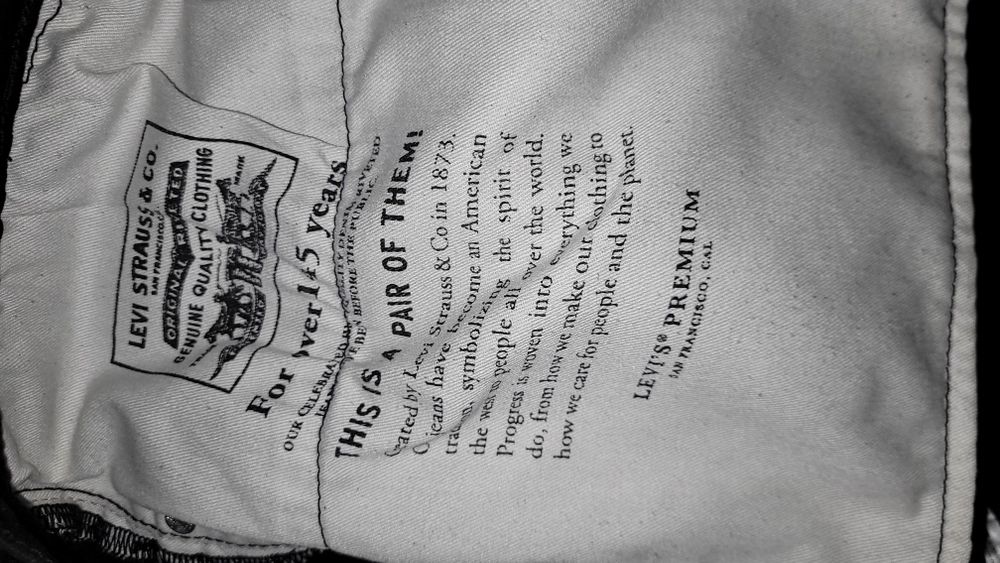 LEVI STRAUSS & CO.
SAN FRANCISCO, CAL
ORIGINAL RIVETED
GENUINE QUALITY CLOTHING
MARK
For over 145 years
OUR CELEBRATED QUALITY DENIM, RIVETED
BEFORE THE PUBLIC.
THIS IS A PAIR OF THEM!
Created by Levi Strauss & Co in 1873.
jeans have become an American
symbolizing the spirit of
the west to people all over the world.
Progress is woven into everything we
do, from how we make our clothing to
how we care for people and the planet.
LEVI'S® PREMIUM
SAN FRANCISCO, CAL